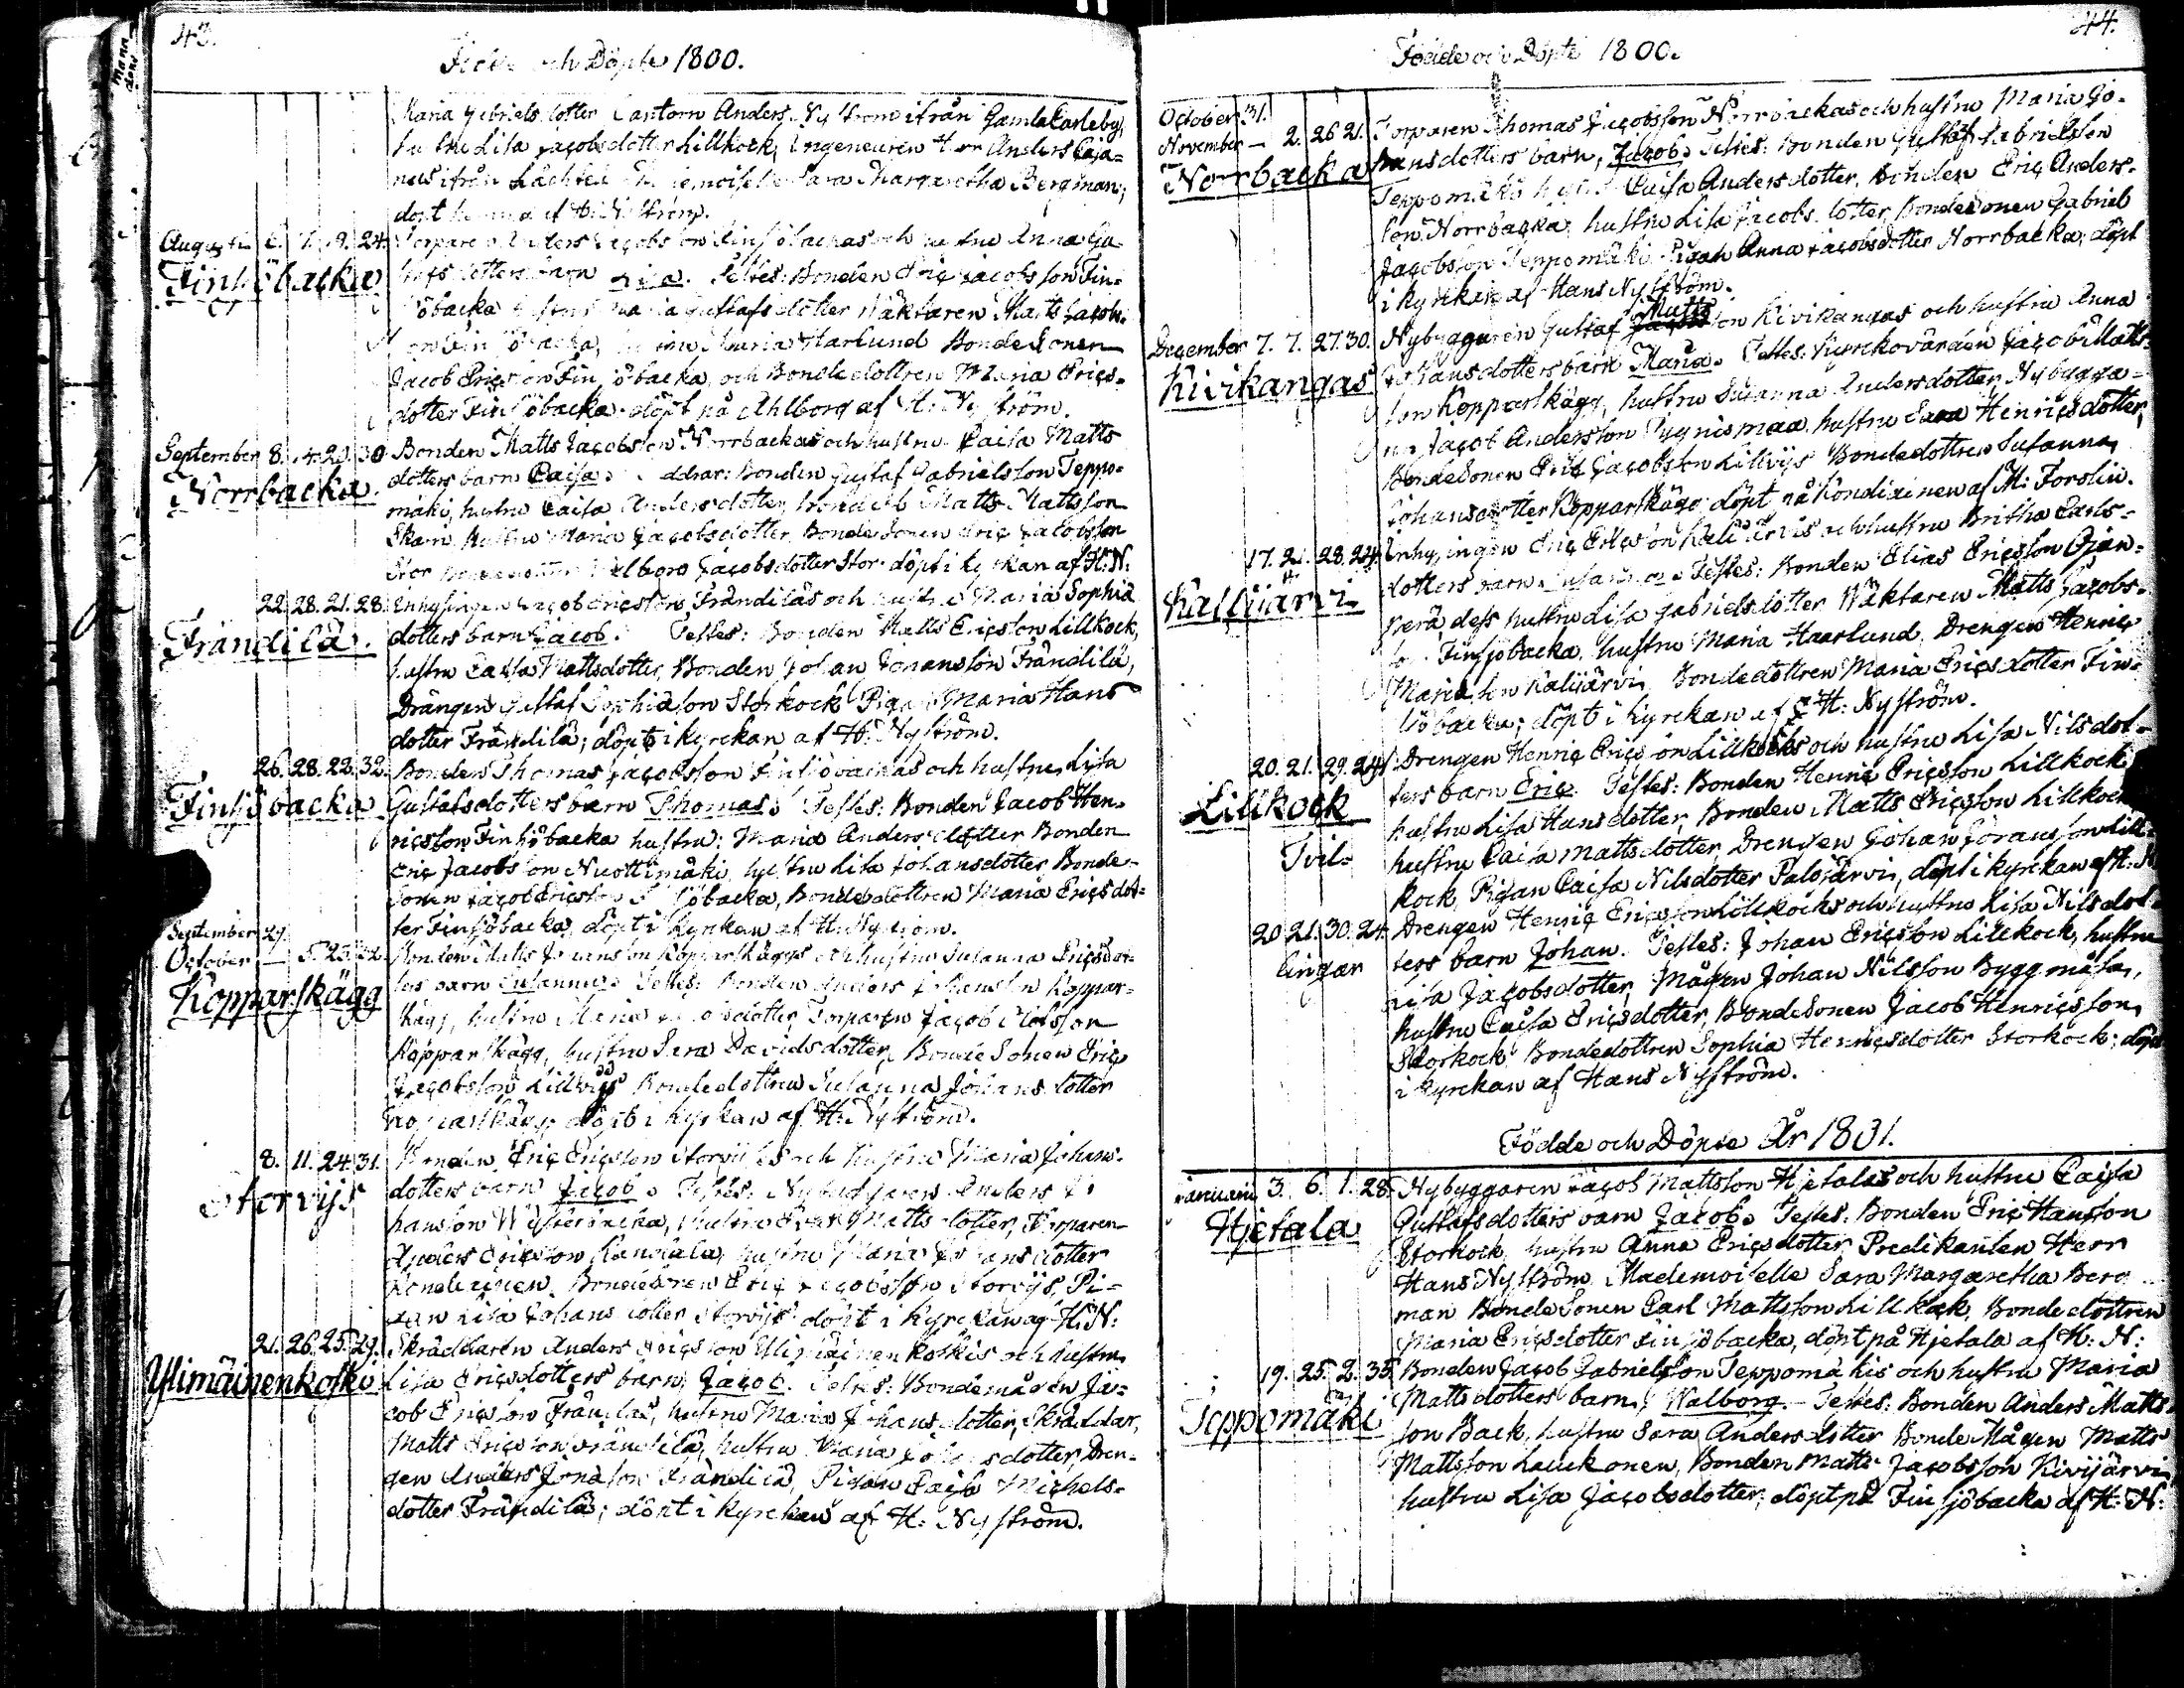 43.
Födde och Döpte 1800.
Maria Gabrielsdotter Cantorn Anders Nyström ifrån Gamla Carleby,
hustru Lisa Jacobsdotter Lillkock, Ingeneuren Herr Anders Caja=
nus ifrån Mademoiselle Sara Margaretha Bergman;
döpt hemma af H: Nyström.
Augusti 6. 7. 19. 24. Torparen Anders Jacobsson Finsjöbackas och hustru Anna Ga
Finsjöbacka
briels dotters barn Lisa. Testes: Bonden Eric Jacobsson Fin=
sjöbacka hustru Maria Gustafsdotter Wäktaren Matts Jacobs
son Finsjöbacka, hustru Maria Harlund BondeSonen
Jacob Ericsson Finsjöbacka, och Bondedottren Maria Erics=
dotter Finsjöbacka. döpt på Ahlborg af H: Nyström.
September 8. 14. 20. 30 Bonden Matts Jacobsson Norrbackas och hustru Caisa Matts
Norrbacka.
dotters barn Caisa. Faddrar: Bonden Gustaf Gabrielsson Teppo=
mäki, hustru Caisa Andersdotter, Bonden Matts Mattsson
Skarn hustru Maria Jacobsdotter, BondeSonen Eric Jacobsson
Stor Walborg Jacobsdotter Stor. döpt i kyrkan af H: N:
22. 28. 21. 28. Enhysingen Jacob Ericsson Frändiläs och hustru Maria Sophia
Frändilä.
dotters barn Jacob. Testes: Bonden Matts Ericsson Lillkock,
hustru Caisa Mattsdotter, Bonden Johan Johansson Frändilä,
Drängen Gustaf Storkock Pigan Maria Hans
dotter Frändilä; döpt i kyrckan af H: Nyström.
26. 28. 22. 32. Bonden Thomas Jacobsson Finsjöbackas och hustru Lisa
Finsjöbacka
Gustafsdotters barn Thomas. Testes: Bonden Jacob Hen=
ricsson Finsjöbacka hustru: Maria Andersdotter Bonden
Eric Jacobsson Nuottimäki, hustru Lisa Johansdotter, Bonde=
Sonen Jacob Ericsson Finsjöbacka, Bondedottren Maria Ericsdot=
ter Finsjöbacka, döpt i kyrkan af H: Nyström.
September 29.
October — 5. 25. Bonden Matts Johansson Kopparskäggs och hustru Susanna Ericsdot=
Kopparskägg
ters barn Susanna. Testes: Bonden Anders Johansson Koppar=
skägg, hustru Maria dotter, Torparen Jacob Olofsson
Kopparskägg, hustru Sara Davidsdotter, BondeSonen Eric
Jacobsson Lillvijs Bondedottren Susanna Johansdotter
Kopparskägg; döpt i kyrkan af H: Nyström.
8. 11. 24. 31. Bonden Eric Ericsson Storvijs och hustru Maria Johans=
Storvijs
dotters barn Jacob. Testes: Nybyggaren Anders Jo
hansson Westerbacka, hustru Matts dotter, Torparen
Anders Ericsson hustru Maria Johansdotter
Kondicinen, BondeSonen Eric Jacobsson Storvijs, Pi=
gan Lisa Johansdotter Storvijs. döpt i kyrckan af H: N:
21. 26. 25. 29. Skräddaren Anders Ericsson Ylimäinenkoskis och hustru
Ylimäinenkoski
Lisa Ericsdotters barn Jacob. Testes: Bondemågen Ja=
cob Ericsson Frändiläs, hustru Maria Johansdotter, Skräddar,
Matts Ericsson Frändilä, hustru Maria Johansdotter, Dren=
gen Anders Jonasson Frändilä, Pigan Caisa Michels=
dotter Frändilä; döpt i kyrckan af H: Nyström.
44.
Födde och Döpte 1800.
October 31.
November — 2. 26 21. Torparen Thomas Jacobsson Norrbackas och hustru Maria Jo=
Norrbacka
hansdotters barn, Jacob. Testes: Bonden Gustaf Gabrielsson
Teppomäki hustru Caisa Andersdotter, Bonden Eric Anders=
son Norrbacka, hustru Lisa Jacobsdotter, BondeSonen Gabriel
Jacobsson Teppomäki Pigan Anna Jacobsdotter Norrbacka; döpt
i kyrckan af Hans Nyström.
Matts
December 7. 7. 27. 30. Nybyggaren Gustaf son Kivikangas och hustru Anna
Kivikangas
Johansdotters barn Maria. Testes: Kyrckovärden Jacob Matts=
son Kopparskägg, hustru Susanna Andersdotter, Nybygga=
ren Jacob Andersson Pygnismaa, hustru Sara Henricsdotter,
BondeSonen Eric Jacobsson Lillvijs Bondedottren Susanna,
Johansdotter Kopparskägg; döpt på Kondicinen af M: Forslin.
17. 21. 28. 24. Enhysingen Eric Ericsson Kalijärvis och hustru Britha Carls=
Kalijärvi
dotters barn Susanna. Testes: Bonden Elias Ericsson Ojan=
perä, dess hustru Lisa Gabrielsdotter Wäktaren Matts Jacobs=
son Finsjöbacka, hustru Maria Haarlund, Drengen Henric
Mariason Kalijärvi Bondedottren Maria Ericsdotter Fin=
sjöbacka; döpt i kyrckan af H: Nyström.
20. 21. 29. 24. Drengen Henric Ericsson Lillkocks och hustru Lisa Nilsdot=
Lillkock
ters barn Eric. Testes: Bonden Henric Ericsson Lillkock
hustru Lisa Hansdotter, Bonden Matts Ericsson Lillkock
Tvil=
hustru Caisa Mattsdotter, Drengen Johan Göransson Lill=
kock, Pigan Caisa Nilsdotter Palojärvi, döpt i kyrkan af H: N
20 21. 30. 24. Drengen Henric Ericsson Lillkocks och hustru Lisa Nilsdot=
lingar
ters barn Johan. Testes: Johan Ericsson Lillkock, hustru
Lisa Jacobsdotter, Mågen Johan Nilsson Byggmäsa,
hustru Caisa Ericsdotter, BondeSonen Jacob Henricsson,
Storkock Bondedottren Sophia Henricsdotter Storkock; döpt
i kyrckan af Hans Nyström.
Födde och Döpte År 1801.
Januarii 3. 6. 1. 28. Nybyggaren Jacob Mattsson Hjetalas och hustru Caisa
Hjetala
Gustafsdotters barn Jacob. Testes: Bonden Eric Hansson
Storkock, hustru Anna Ericsdotter Predikanten Herr
Hans Nyström Mademoiselle Sara Margaretha Berg
man BondeSonen Carl Mattsson Lillkock, Bondedottren
Maria Ericsdotter Finsjöbacka, döpt på Hjetala af H: N:
19. 25. 2. 35. Bonden Jacob Gabrielsson Teppomäkis och hustru Maria
Teppomäki
Mattsdotters barn, Walborg. Testes: Bonden Anders Matts
son Back, hustru Sara Andersdotter BondeMågen Matts
Mattsson Lauckonen, Bonden Matts Jacobsson Kivijärvi
hustru Lisa Jacobsdotter; döpt på Finsjöbacka af H: N: